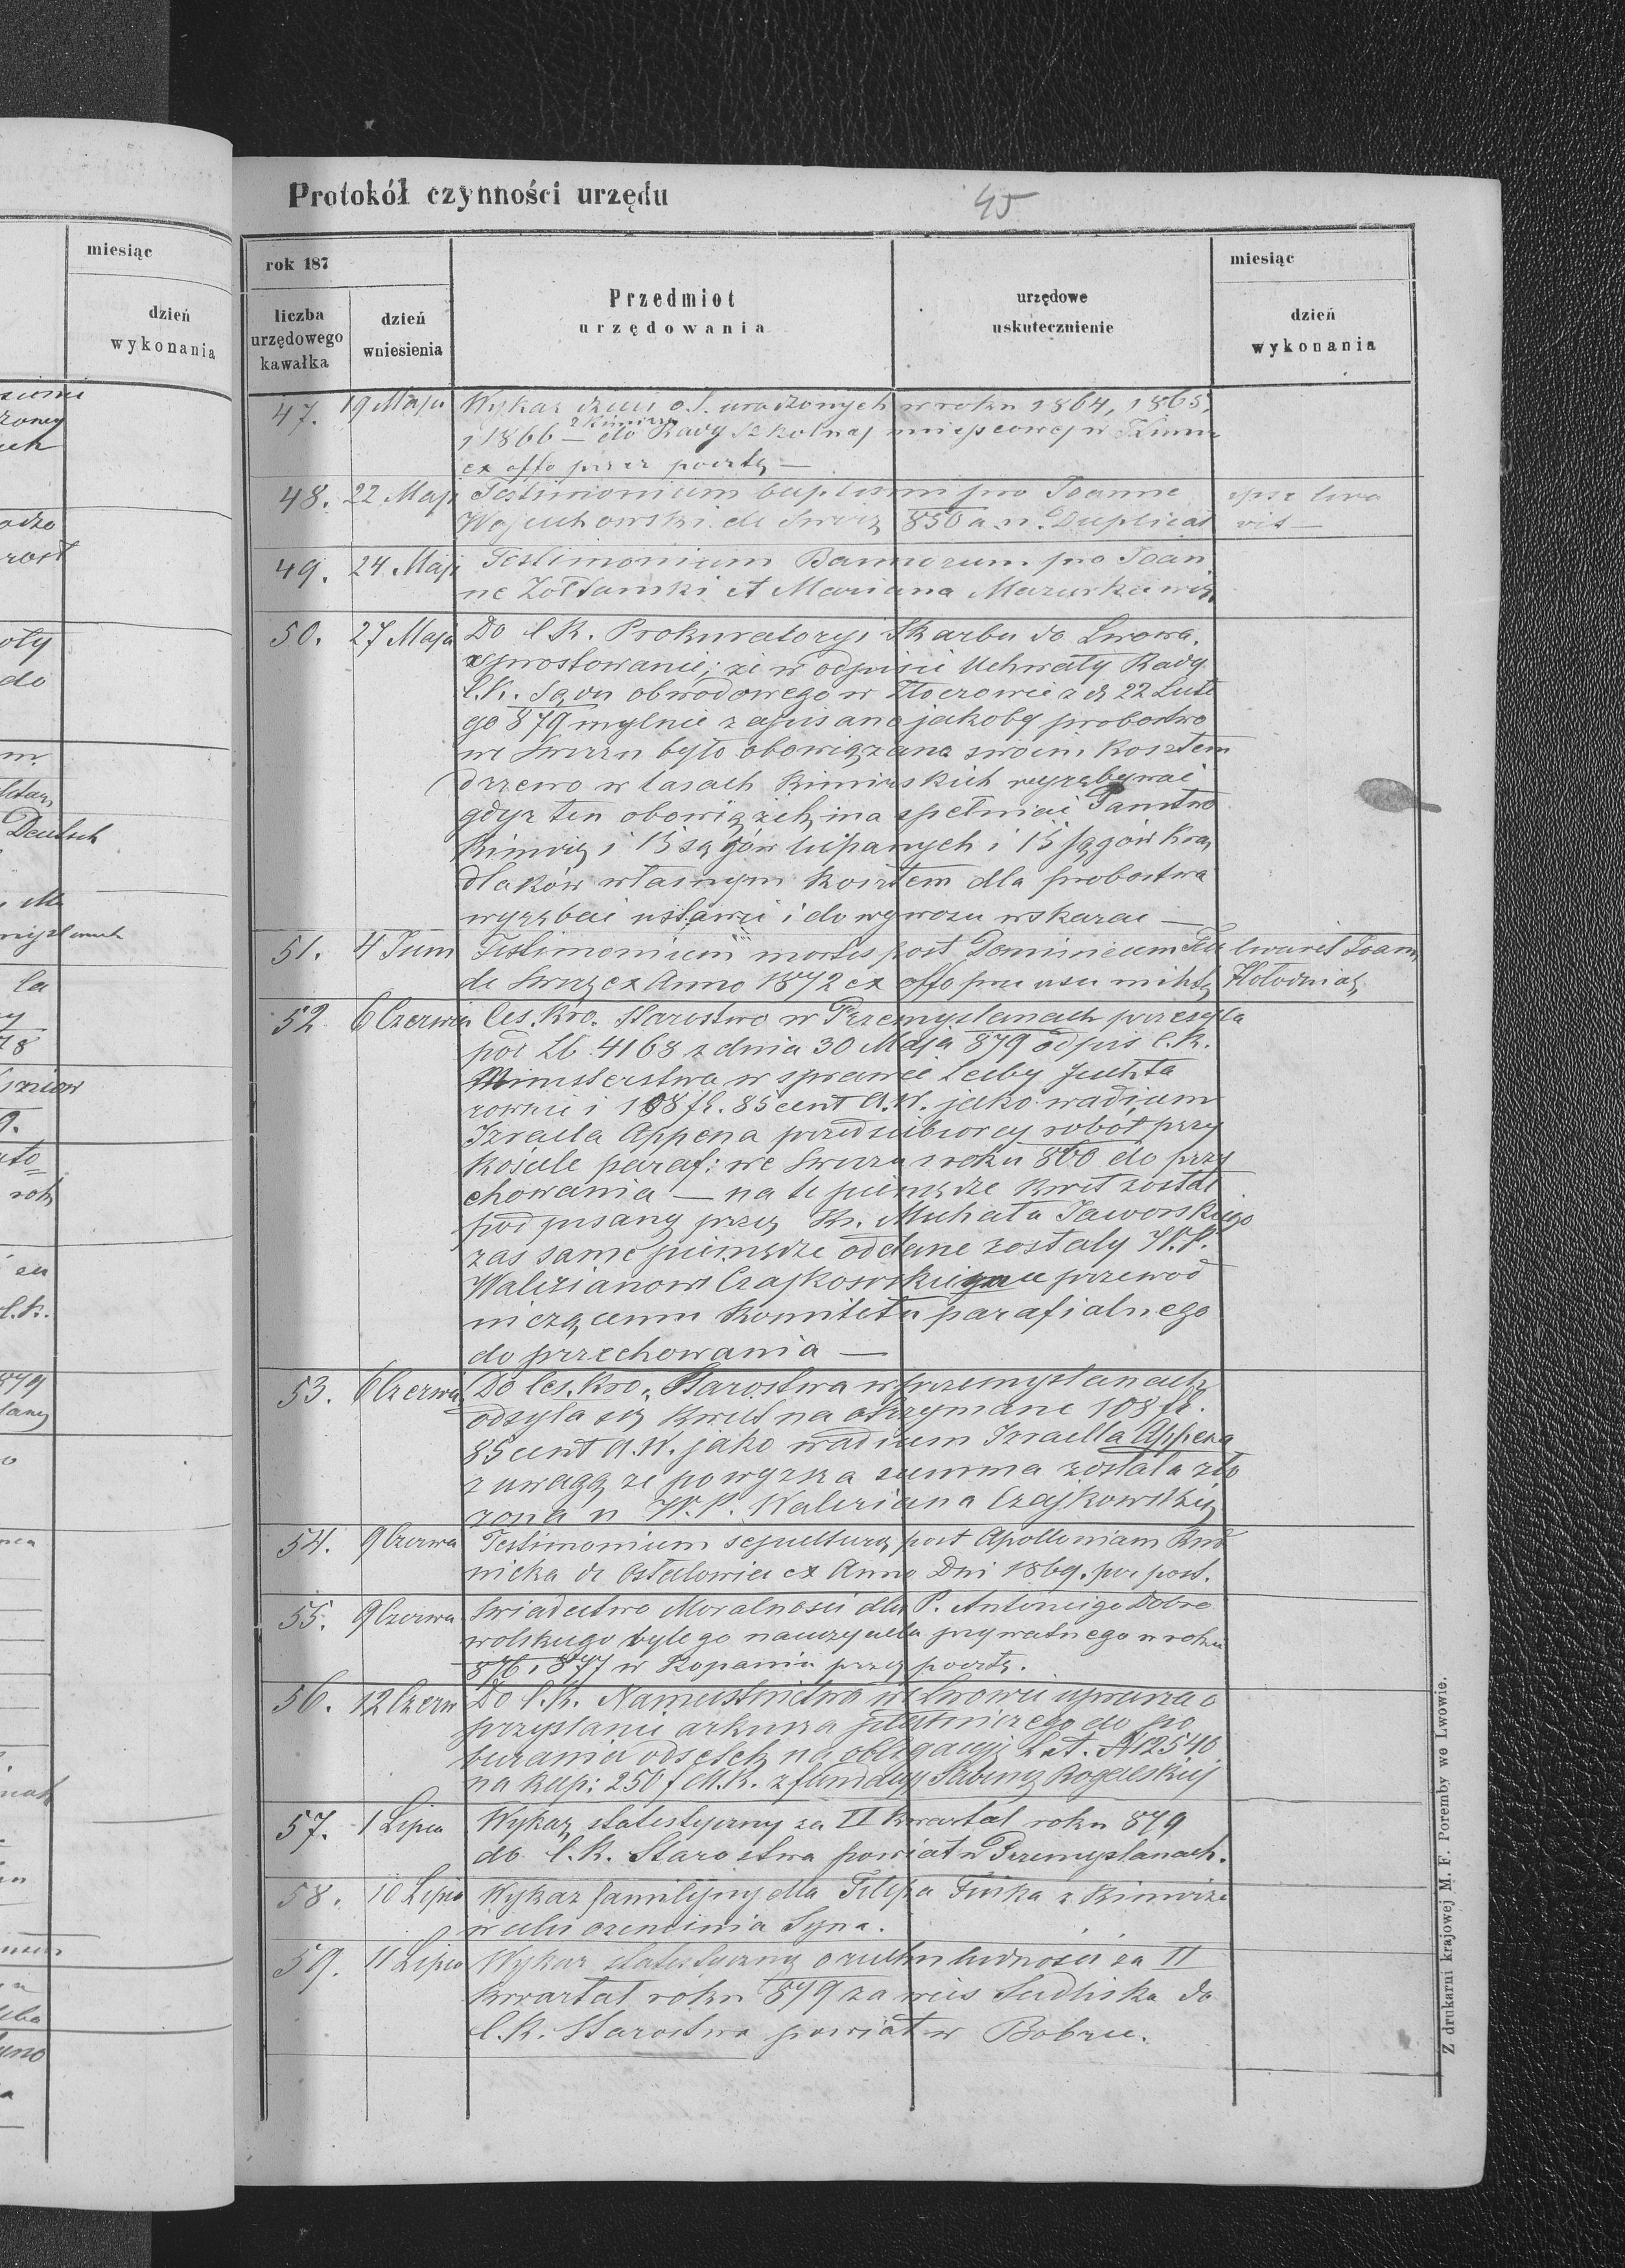 Protokół czynności urzędu
45
rok 187
miesiąc
liczba urzędowego kawałka
dzień wniesienia
Przedmiot urzędowania
urzędowe uskutecznienie
dzień wykonania
47. 19 Maja Wykaz dzieci o. ł. urodzonych w roku 1864, 1865,
i 1866 — do Rady szkolnej miejscowej w
ex offo przez pocztę —
48. 22 Maji Testimonium baptismi pro Joanne ipse leva
Wojciechowski de Swirz 850 a. n. Duplicat vit —
49. 24 Maji Testimonium Bannorum pro Joan
ne Żołtanski et Mariana Mazurkiewicz
50. 27 Maja Do C. K. Prokuratoryi Skarbu do Lwowa.
sprostowanie; że w odpisie Uchwały Rady
C. K. Sądu obwodowego w Złoczowie z d. 22 Lute
go 879 mylnie zapisano jakoby probostwo
we Swirzu było obowiązane swoim kosztem
drzewo w lasach Kimirskich wyrębywać
gdyż ten obowiązek ma spełniać Państwo
Kimirz i 15 sągów łupanych i 15 sągów krą
dlaków własnym kosztem dla probostwa
wyrębać ustawić i do wywozu wskazać —
51. 4 Juni Testimonium mortis post Dominicum levavit Joann
de Swirz ex Anno 1872 ex offo pro usu milit. Hołodniak
52 6 Czerwca Ces. Kro. Starostwo w Przemyślanach przesyła
pod Lb. 4168 z dnia 30 Maja 879 odpis C. K.
Ministerstwa w sprawie
i 108 fl. 85 cent A. W. jako wadium
Izraela Appena przedsiębiorcy robót przy
kościele paraf: we Swirzu z roku 860 do przy
chowania — na te pieniądze kwit został
podpisany przez Ks. Michała Jaworskiego
zaś same pieniądze oddane zostały W. P.
Walerianowi Czajkowskiemu przewod
niczącemu Komitetu parafialnego
do przechowania —
53. 6 Czerwca Do Ces. Kro. Starostwa w Przemyślanach
odsyła się kwit na otrzymane 108 fl.
85 cent A. W. jako wadium Izraella Appena
z uwagą że powyższa summa została zło
żona u W. P. Waleriana Czajkowskieg
54. 9 Czerwca Testimonium sepulturæ post Apolloniam Rud
nicka de Ostałowice ex Anno Dni 1869. per post.
55. 9 Czerwca Świadectwo Moralności dla P. Antoniego Dobro
wolskiego byłego nauczyciela prywatnego w roku
876 i 877 w Kopaniu przez pocztę.
56. 12 Czerw Do C. K. Namiestnictwa we Lwowie uprasza o
przysłanie arkusza płatniczego do po
bierania odsetek na obligacyję Lit. A 12540
na kap: 250 f M. K. z fundacyi Sabiny Rogalskiej
57. 1 Lipca Wykaz statestyczny za II kwartał roku 879
do C. K. Starostwa powiat w Przemyslanach.
58. 10 Lipca Wykaz familijny dla Filipa Furka z Kimirza
w celu ożenienia Syna.
59. 11 Lipca Wykaz statestyczny o ruchu ludności za II
kwartał roku 879 za wieś Sudliska do
C. K. Starostwa powiat w Bobrce.
Z drukarni krajowej M. F. Poremby we Lwowie.
miesiąc
dzień wykonania